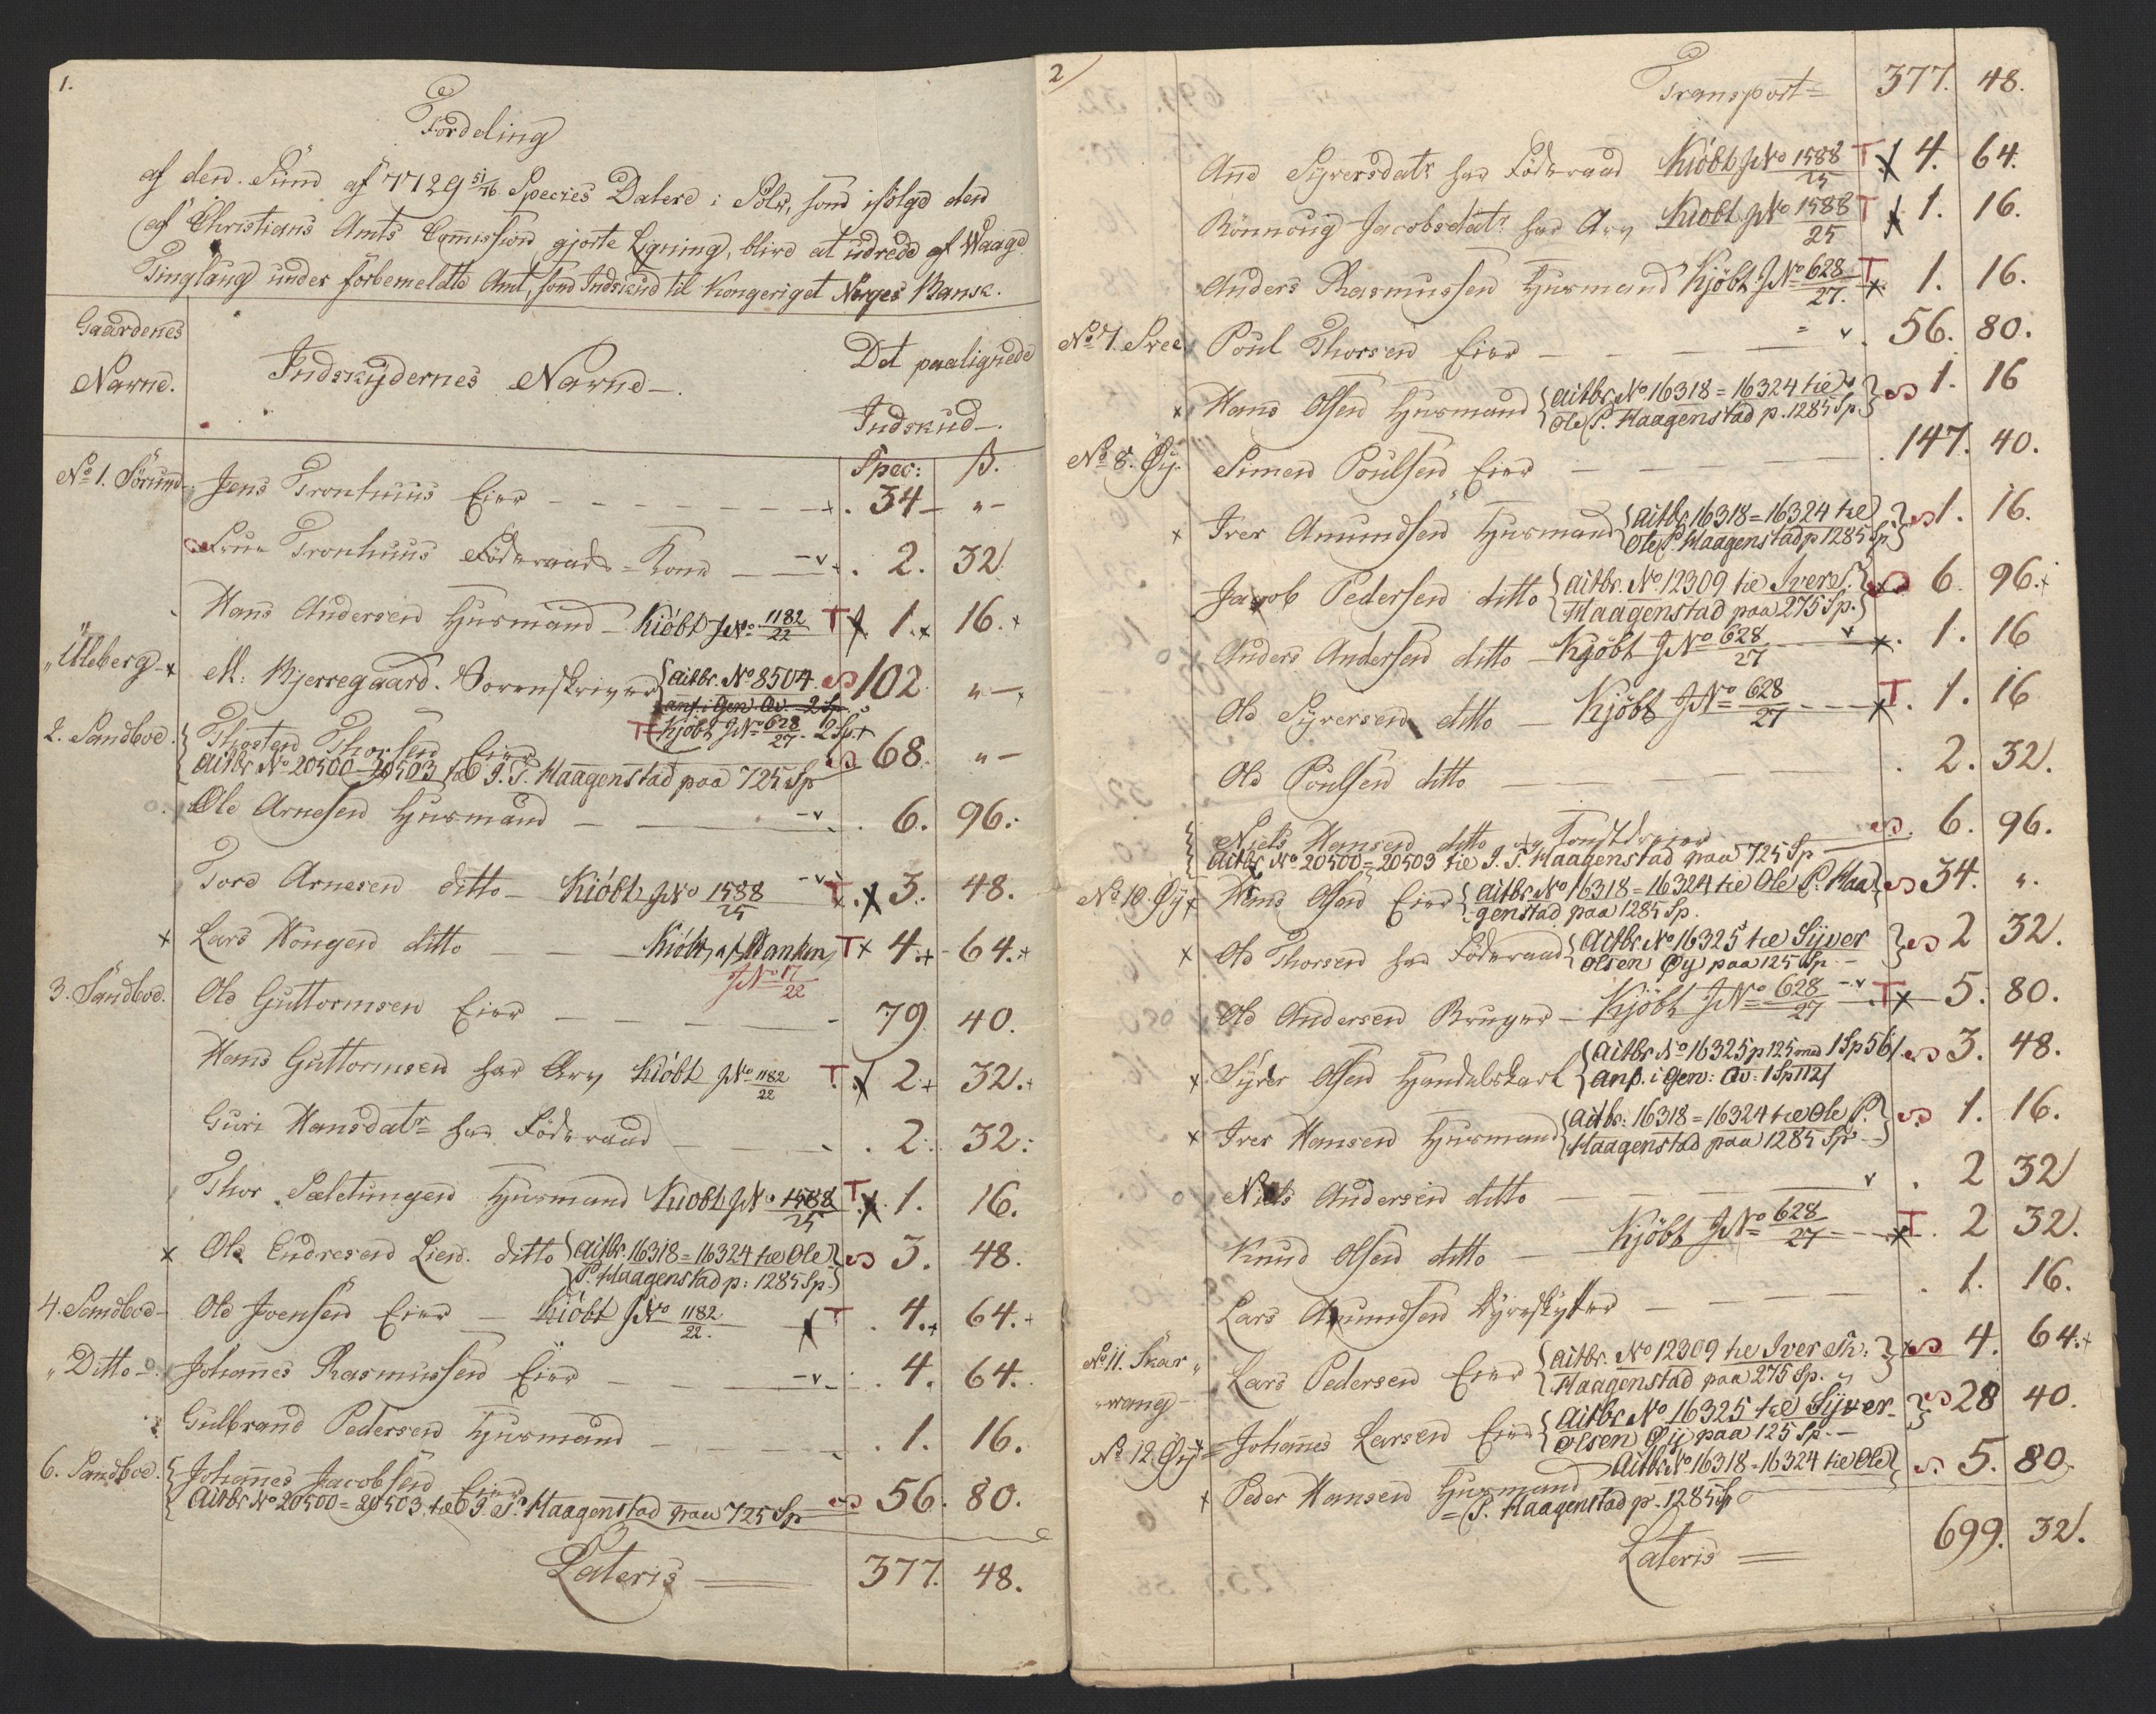 1.
Fordeling
af den Sum af 7729 51/76 Species Daler i Sölv, som ifölge den
af Christians Amts Commission gjorte Ligning, blive at udrede af Waage
Tinglaug under forbemeldte Amt, som Indskud til Kongeriget Norges Bank.
Gaardenes Navne. Indskydernes Navne Det paalignede Indskud
Spec: ß.
No 1. Sörum Jens Tronhuus Eier 34 " -
Frue Tronhuus Föderaads-Kone 2. 32
Hans Andersen Huusmand Kiöbt JNo 1182/22 T 1. 16.
" Uleberg M: Bjerregaard. Sorenskriver {Aitbr. No 8504 102 " -
anf. i Gen. Av. 2 Sp.
T Kjöbt JNo 628/27 2 Sp.
2. Sandboe. Thosten Thorsen Eier 68. " -
Aitbr No 20500 = 20503 til J. T. Haagenstad paa 725 Sp
Ole Arnesen Huusmand 6. 96.
Tore Arnesen ditto Kiöbt JNo 1588/25 T 3. 48.
x Lars Hougen ditto Kiöbt af Banken T 4. 64.
JNo 17/22
3. Sandboe. Ole Guttormsen Eier 79 40.
Hans Guttormsen har Arv Kiöbt JNo 1182/22 T 2 32.
Guri Hansdatr har Föderaad 2. 32.
Thor Saletungen Huusmand Kiobt JNo 1588/25 T 1. 16.
x Ole Endresen Lien. ditto {Aitbr. 16318 = 16324 til Ole 3. 48.
P. Haagenstad p: 1285 Sp.}
4. Sandboe Ole Joensen Eier Kiöbt JNo 1182/22. T 4. 64.
" Ditto Johannes Rasmussen Eier 4. 64.
Gulbrand Pedersen Huusmand 1. 16.
6. Sandboe. Johannes Jacobsen Eier 56. 80.
Aitbr No 20500 = 20503 til J. T. Haagenstad paa 725 Sp
Lateris 377. 48.
2
Transport 377. 48.
Ane Syversdatr har Föderaad Kiöbt JNo 1588/25 T 4. 64.
Rönnoug Jacobsdatr har Arv Kiobt JNo 1588/25 T 1. 16.
Anders Rasmussen Huusmand Kjöbt JNo 628/27. T 1. 16.
No 7. Sree Poul Thorsen Eier 56. 80.
x Hans Olsen Huusmand {Aitbr. No 16318 = 16324 til 1. 16
Ole P. Haagenstad p. 1285 Sp.}
No 8. Öy. Simen Poulsen Eier 147. 40.
x Iver Amundsen Huusmand {Aitbr. 16318 = 16324 til 1. 16.
Ole P. Haagenstad p 1285 Sp}
Jacob Pedersen ditto {Aitbr. No 12309 til Iver T. 6. 96.
Haagenstad paa 275 Sp.}
Anders Andersen ditto Kjöbt JNo 628/27 1. 16
Ole Syversen ditto Kjöbt JNo 628/27 T. 1. 16
Ole Poulsen ditto 2. 32.
Niels Hansen ditto og 6. 96.
Aitbr No 20500 = 20503 til J. T. Haagenstad paa 725 Sp
No 10. Öy x Hans Olsen Eier {Aitbr. No 16318 = 16324 til Ole P. Haa} 34. ".
genstad paa 1285 Sp.
x Ole Thorsen har Föderaad {Aitbr. No 16325 til Syver 2 32.
Olsen Öy paa 125 Sp.
Ole Andersen Bruger Kjöbt JNo 628/27 T 5. 80.
x Syver Olsen Handelskarl {Aitbr No 16325 p 125 med 1 Sp 56ß 3. 48.
anf. i Gen: Av: 1 Sp 112ß
x Iver Hansen Huusmand {Aitbr. 16318 = 16324 til Ole P. 1. 16.
Haagenstad paa 1285 Sp
Niels Andersen ditto 2 32
Knud Olsen ditto Kjöbt JNo 628/27 T. 2 32.
Lars Amundsen Dyreskytter 1. 16.
No 11. Skar-wang Lars Pedersen Eier {Aitbr. No 12309 til Iver Th: 4. 64.
Haagenstad paa 275 Sp.
No 12. Öy Johannes Larsen Eier {Aitbr No 16325 til Syver 28 40.
Olsen Öy paa 125 Sp.
x Peder Hansen Huusmand Aitbr No 16318 = 16324 til Ole 5. 80.
P. Haagenstad p. 1285 Sp
Lateris 699. 32.